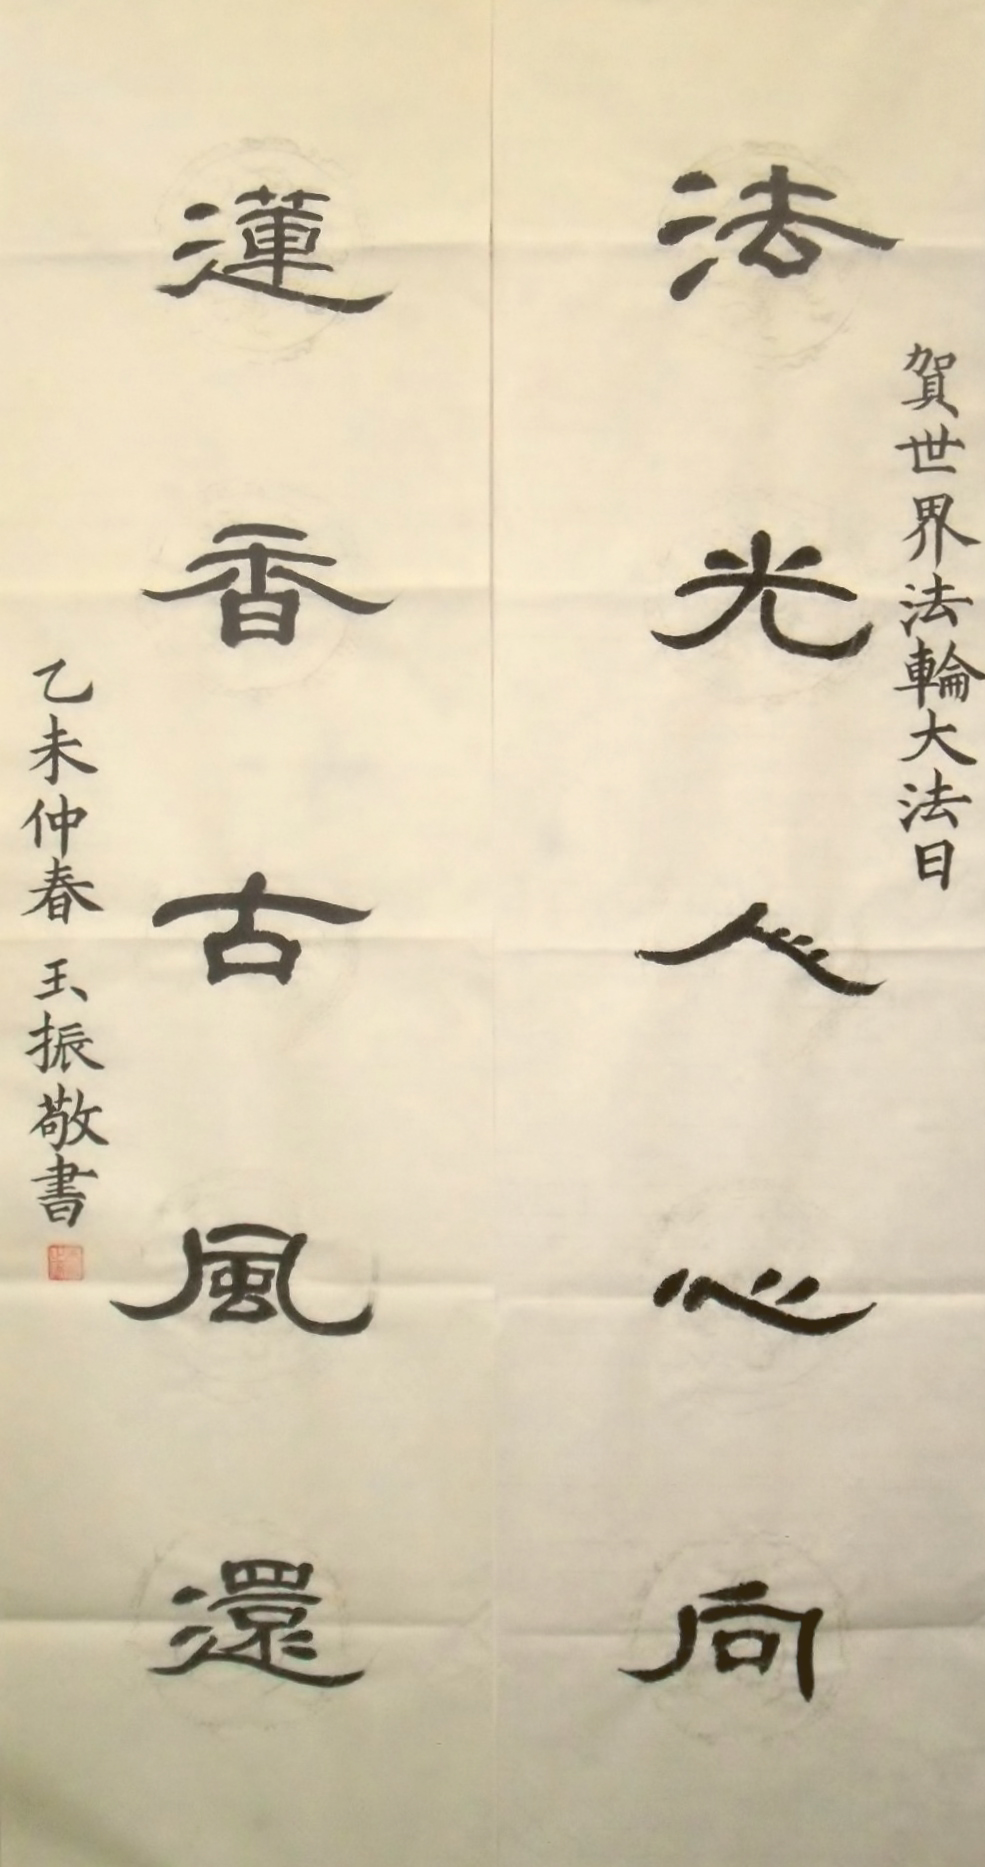 賀世界法輪大法日
法光人心向
蓮香古風還
乙未仲春 玉振敬書